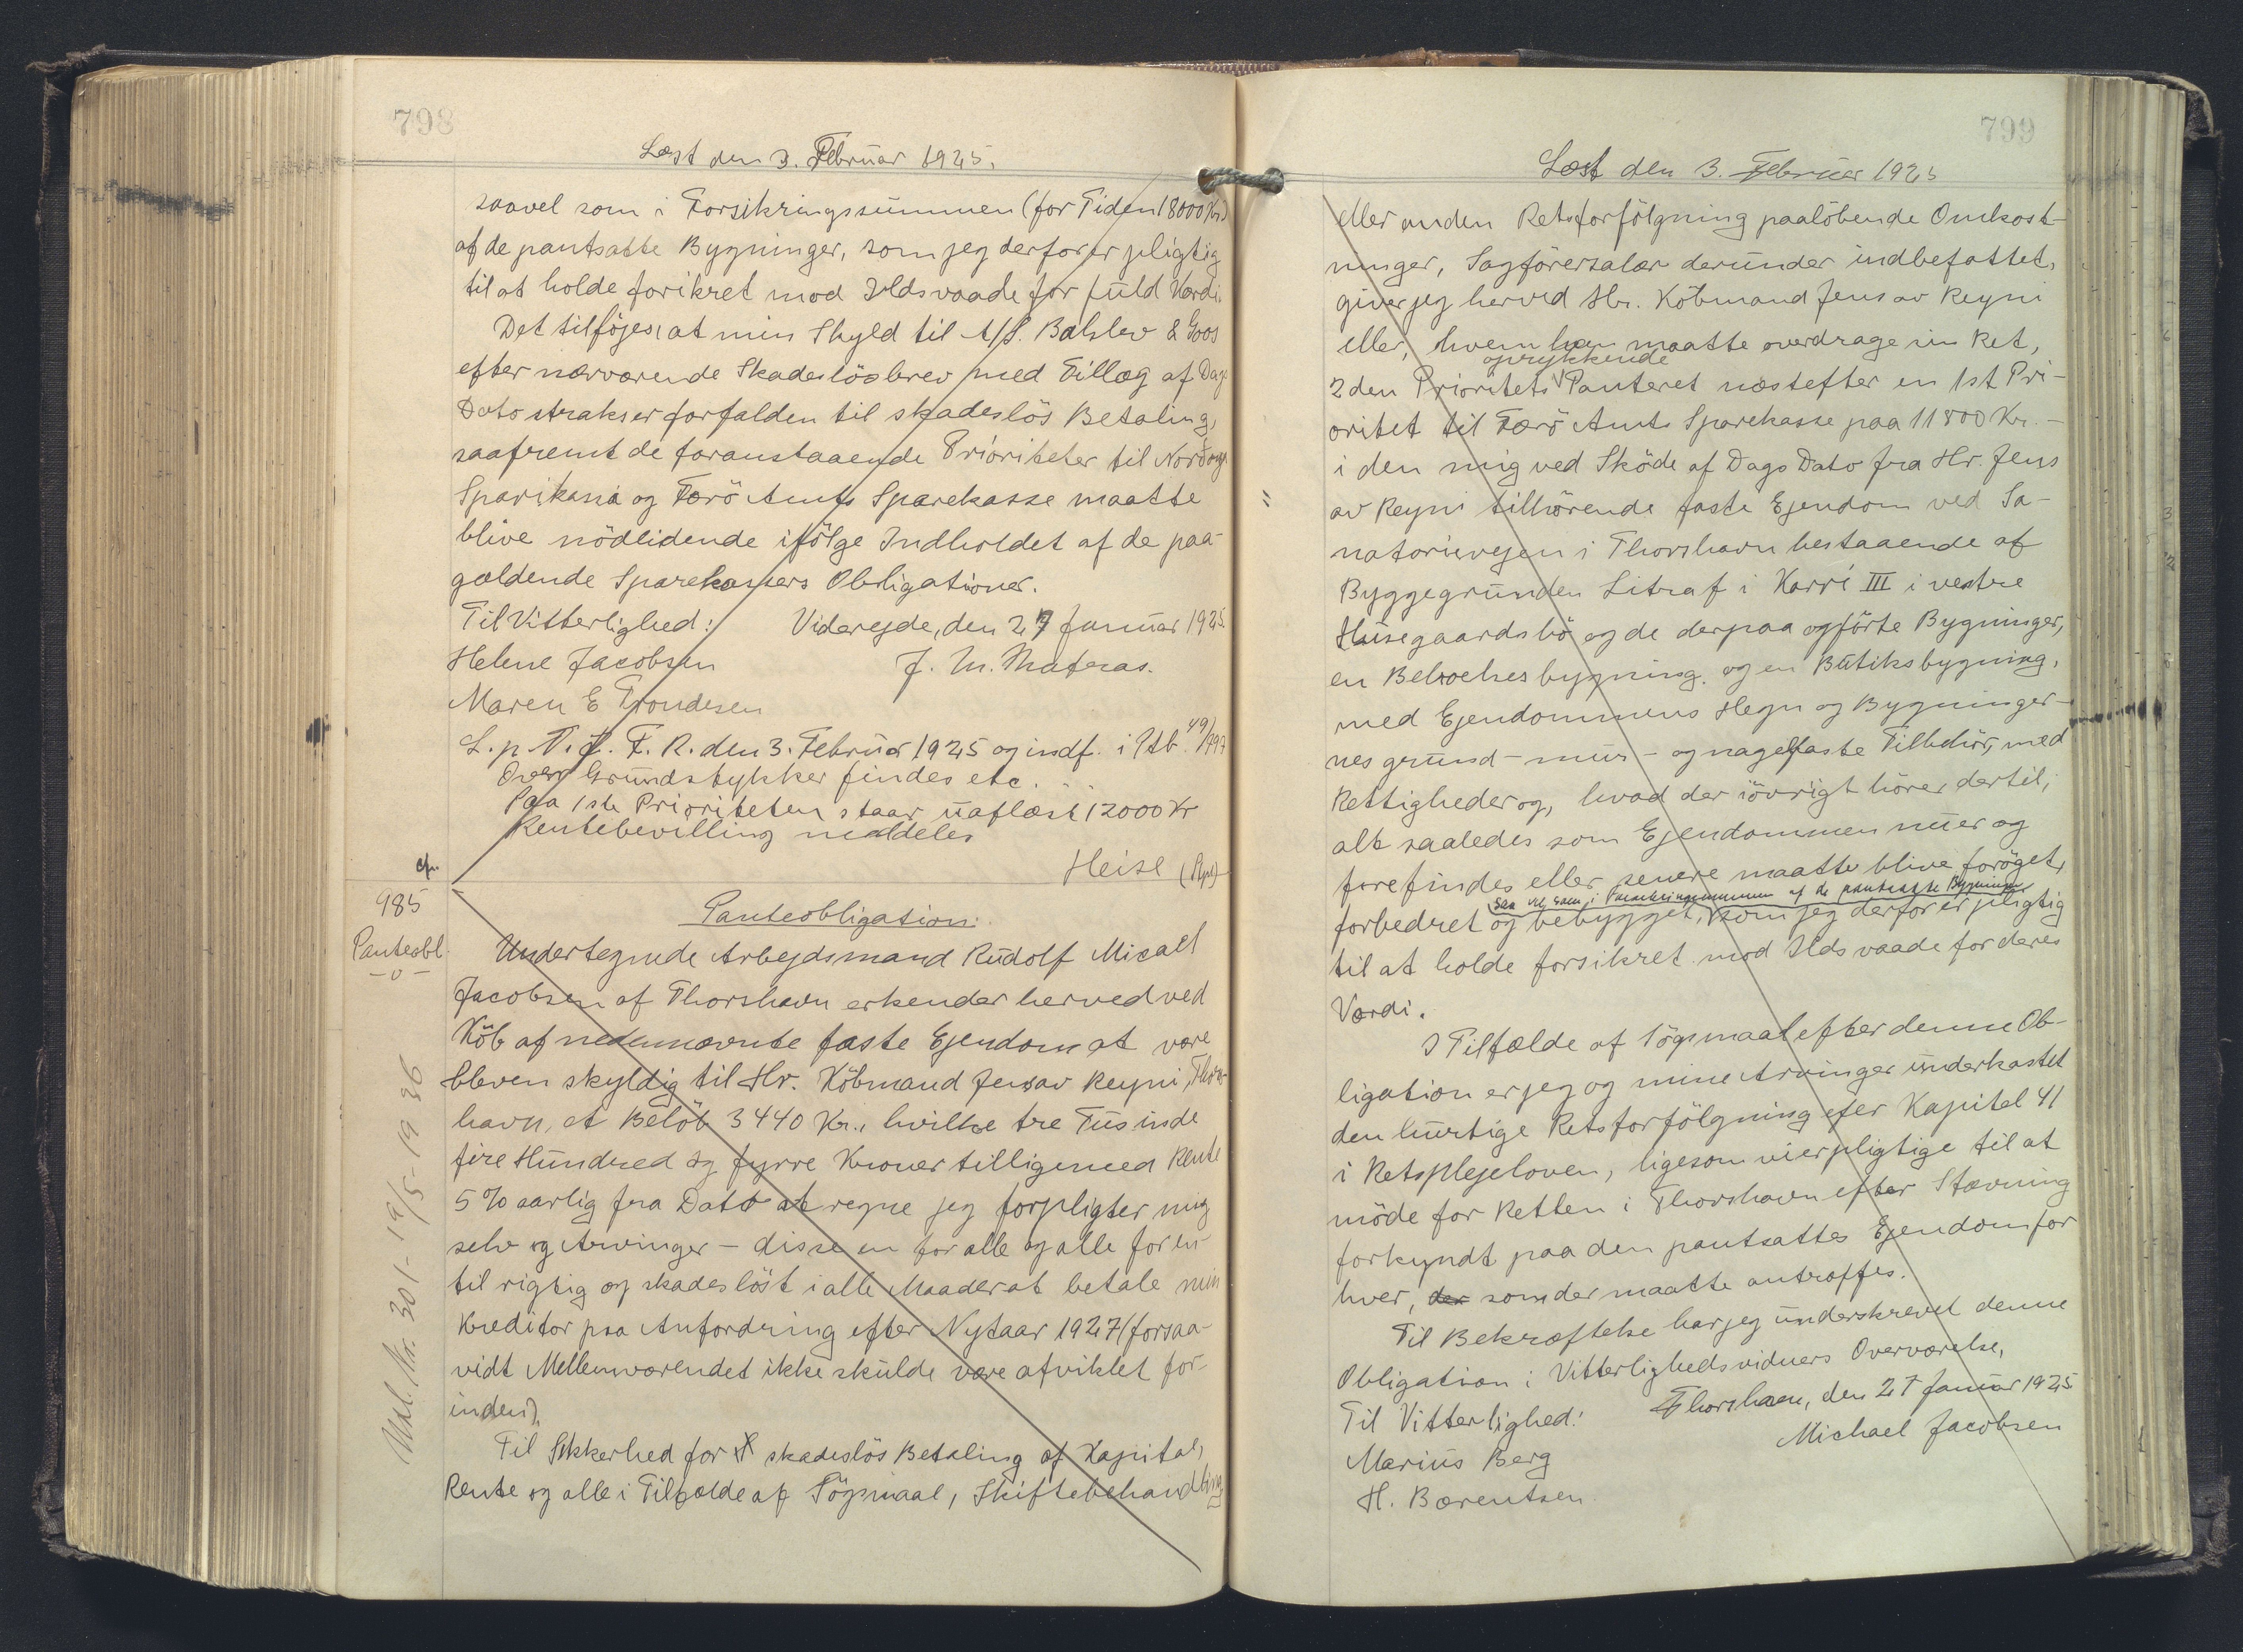 798
Læst den 3. Februar 1925.
saavel som i Forsikringssummen (for Tiden 18000 Kr.)
af de pantsatte Bygninger, som jeg derfor er pligtig
til at holde forikret mod Ildsvaade for fuld Værdi.
Det tilföjes, at min Skyld til A/S. Balslev & Goos
efter nærværende Skadeslösbrev med Tillæg af Dags
Dato straks er forfalden til skadeslös Betaling,
saafremt de foranstaaende Prioriteter til Nordoya
Sparikassa og Færö Amts Sparekasse maatte
blive nödlidende ifölge Indholdet af de paa-
gældende Sparekassers Obligationer.
Til Vitterlighed: Viderejde, den 27 Januar 1925.
Helene Jacobsen J. M. Matras.
Maren E Trondesen
L. p. T. f. F. R. den 3. Februar 1925 og indf. i Ptb. 49/997
Over Grundstykker findes etc.
Paa 1ste Prioriteten staar uaflæst 12000 Kr
Rentebevilling meddeles
Heise
cfr.
985
Panteobl.
-o-
Panteobligation:
Undertegnede Arbejdsmand Rudolf Micael
Jacobsen af Thorshavn erkender herved ved
Köb af nedennævnte faste Ejendom at være
bleven skyldig til Hr. Köbmand Jens av Reyni, Thors-
havn, et Belöb 3440 Kr., hvilke tre Tusinde
fire Hundred og fyrre Kroner tilligemed Rente
5 % aarlig fra Dato at regne jeg forpligter mig
selv og Arvinger - disse en for alle og alle for en -
til rigtig og skadeslöst i alle Maader at betale min
Kreditor paa Anfordring efter Nytaar 1927 (forsaa-
vidt Mellemværendet ikke skulde være afviklet for-
inden).
Til Sikkerhed for skadeslös Betaling af Kapital,
Rente og alle i Tilfælde af Sögsmaal, Skiftebehandling
Udl. Nr. 301 - 19/5 - 1936
799
Læst den 3. Februar 1925
eller anden Retsforfölgning paalöbende Omkost-
ninger, Sagförersalær derunder indbefattet,
giver jeg herved Hr. Köbmand Jens av Reyni
eller, hvem han maatte overdrage sin Ret,
oprykkende
2den Prioritets Panteret næstefter en 1st Pri-
oritet til Færö Amts Sparekasse paa 11800 Kr. -
i den mig ved Sköde af Dags Dato fra Hr. Jens
av Reyni tilhörende faste Ejendom ved Sa-
natorievejen i Thorshavn bestaaende af
Byggegrunden Litra f i Karré III i vestre
Husegaardsbö og de derpaa opförte Bygninger,
en Beboelsesbygning og en Butiksbygning,
med Ejendommens Hegn og Bygninger-
nes grund- mur- og nagelfaste Tilbehör, med
Rettigheder og, hvad der iövrigt hörer dertil,
alt saaledes som Ejendommen nu er og
forefindes eller senere maatte blive foröget,
saa vel som i Forsikringssummen af de pantsatte Bygninger
forbedret og bebygget, som jeg derfor er pligtig
til at holde forsikret mod Ildsvaade for deres
Værdi.
I Tilfælde af Sögsmaal efter denne Ob-
ligation er jeg og mine Arvinger underkastet
den hurtige Retsforfölgning efer Kapitel 41
i Retsplejeloven, ligesom vi er pligtige til at
möde for Retten i Thorshavn efter Stævning
forkyndt paa den pantsattes Ejendom for
hver, der som der maatte antræffes.
Til Bekræftelse har jeg underskrevet denne
Obligation i Vitterlighedsvidners Overværelse,
Til Vitterlighed: Thorshavn, den 27 Januar 1925
Marius Berg Michael Jacobsen
H. Bærentsen